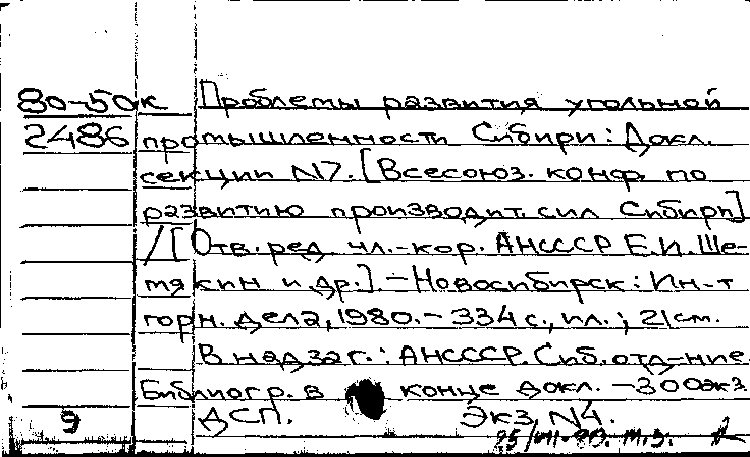 80-50к Проблемы развития угольной
2486 промышленности Сибири: Докл.
секции N17. [Всесоюз. конф. по
развитию производит. сил Сибири]
/[Отв. ред. чл.-кор. АНСССР Е.И. Ше-
мякин и др.]. – Новосибирск: Ин-т
горн. дела, 1980. – 334 с., ил.; 21 см.
В надзаг.: АНСССР. Сиб. отд-ние.
Библиогр. в конце докл. – 300 экз
9 ДСП. Экз. N4.
25/VII-80. М.З.